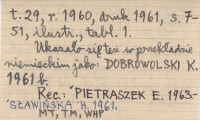 t. 29, r. 1960, druk 1961, s. 7-
51, ilustr., tabl. 1.
Ukazało się też w przekładzie
niemieckim jako: DOBROWOLSKI K.
1961 b.
Rec.: PIETRASZEK E. 1963-
SŁAWIŃSKA H. 1961.
MT, TM, WHP